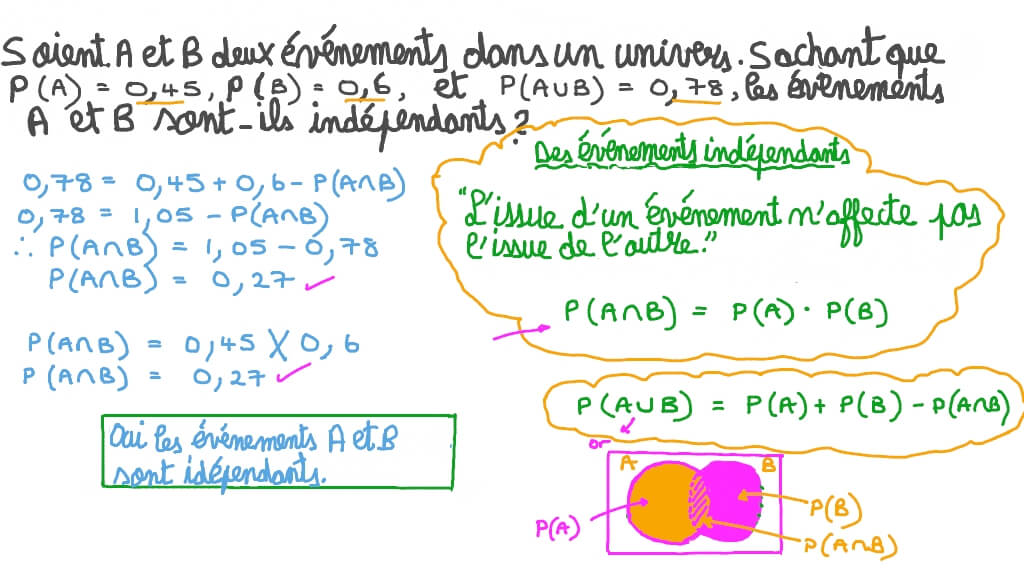 Soient A et B deux événements dans un univers. Sachant que
P(A) = 0,45, P(B) = 0,6, et P(A∪B) = 0,78, les événements
A et B sont-ils indépendants?
0,78 = 0,45 + 0,6 - P(A∩B)
0,78 = 1,05 - P(A∩B)
∴ P(A∩B) = 1,05 - 0,78
P(A∩B) = 0,27 ✓
P(A∩B) = 0,45 X 0,6
P(A∩B) = 0,27 ✓
Oui les événements A et B
sont idépendants.
Des événements indépendants
"L'issue d'un événement n'affecte pas
l'issue de l'autre."
P(A∩B) = P(A) · P(B)
P(A∪B) = P(A) + P(B) - P(A∩B)
or
A B
P(A)
P(B)
P(A∩B)